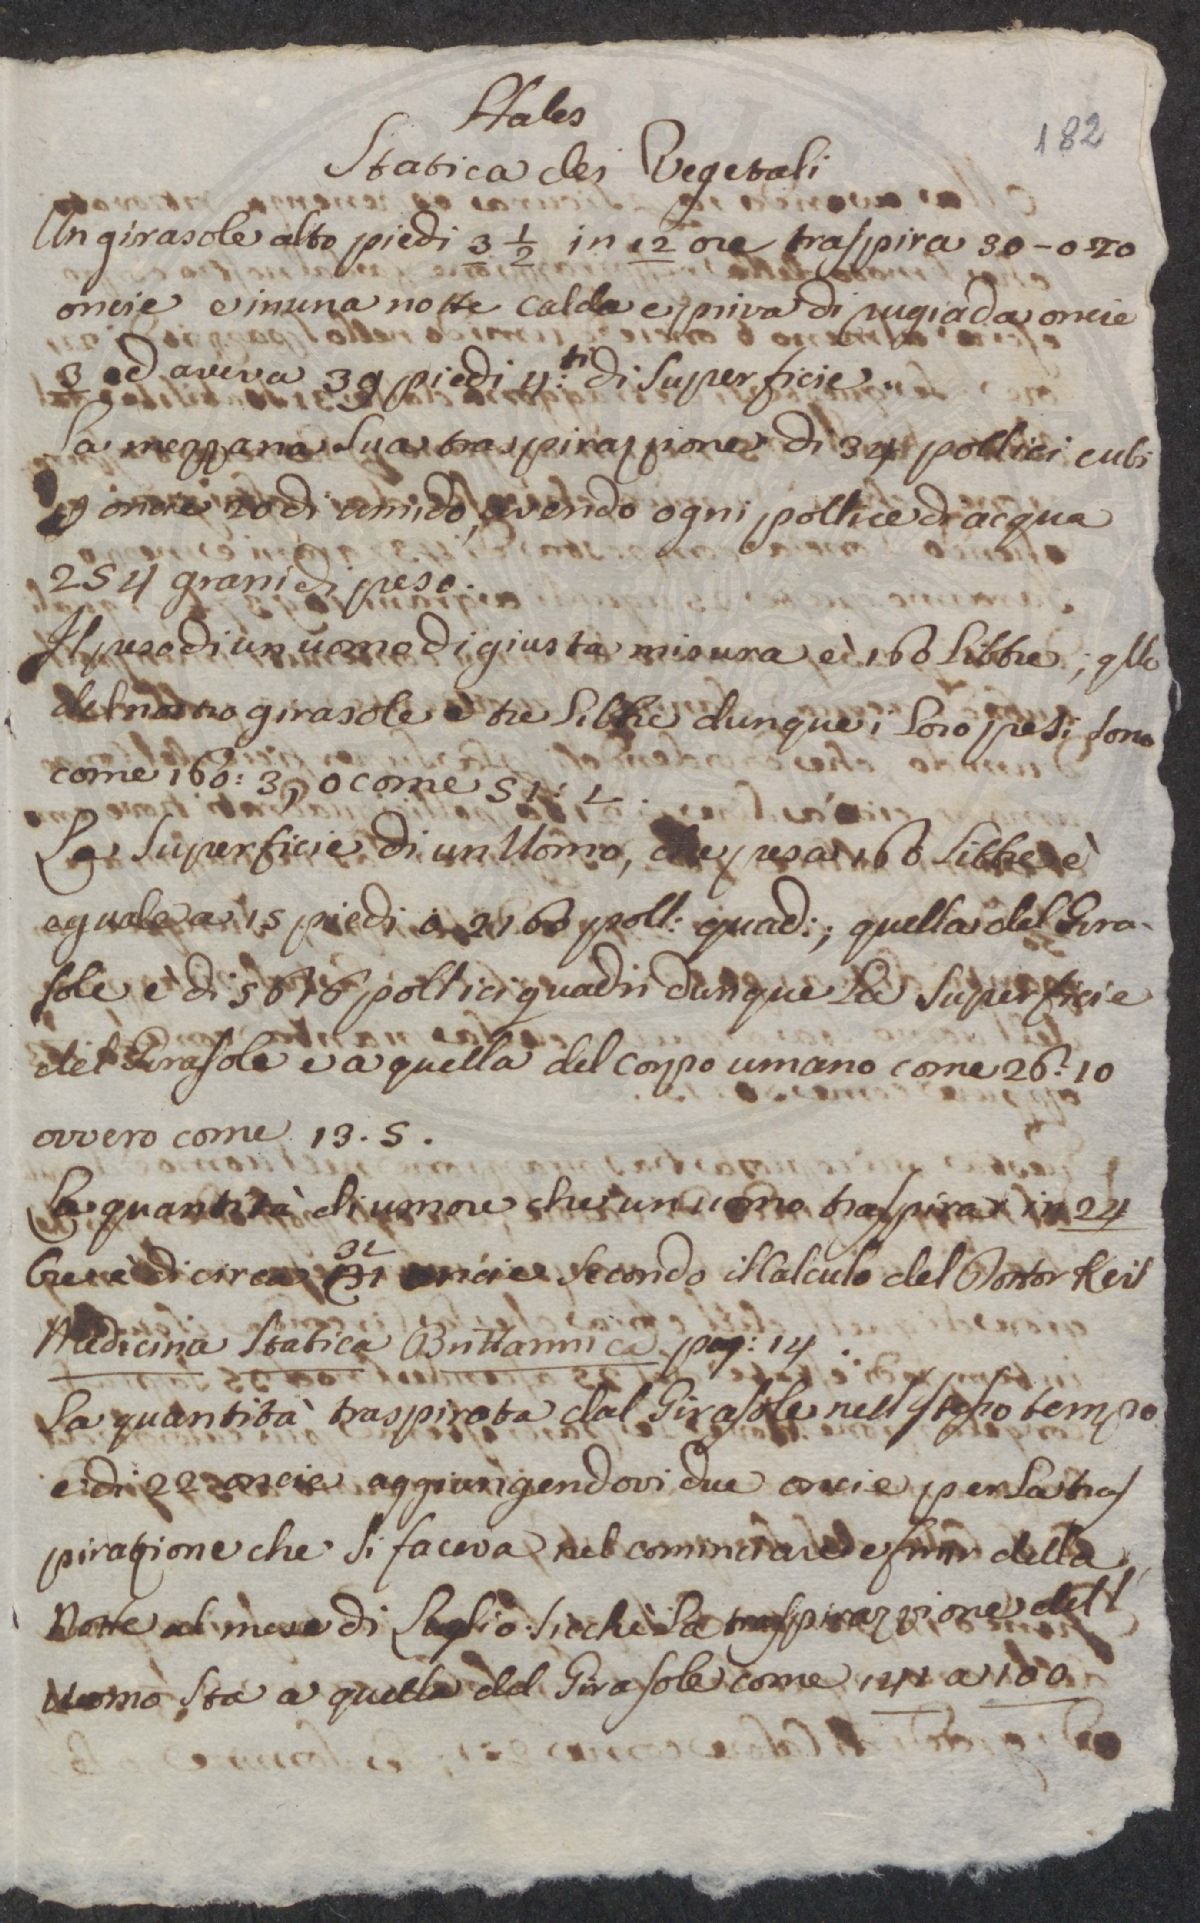 Hales
182
Statica dei Vegetali
Un girasole alto piedi 3 1/2 in 12 ore traspira 30 - o 20
oncie e in una notte calda e priva di rugiada oncie
3 ed aveva 39 piedi q.ti di Superficie.
La mezzana sua traspirazzione di 34 pollici cubi
oncie 20 di umido, avendo ogni pollice di acqua
254 grani di peso.
Il peso di un uomo di giusta misura è 160 libbre; qllo
del nostro girasole è tre libbre dunque i loro pesi sono
come 160: 3, o come 51: 1.
La Superficie di un Uomo, che pesa 160 libbre è
eguale a 15 piedi o 2160 poll: quad:; quella del Gira-
sole è di 5616 pollici quadri dunque la Superficie
del Girasole è a quella del corpo umano come 26: 10
ovvero come 13. 5.
La quantità di umore che un uomo traspira in 24
Ore è di circa 31 oncie secondo il Calculo del Dottor Keil
Medicina Statica Brittannica pag: 14.
La quantità traspirata dal Girasole nell stesso tempo
è di 22 oncie aggiungendovi due oncie per la tras
pirazione che si faceva nel cominciare e finir della
Notte al mese di Luglio. sicchè la traspirazzione dell'
Uomo sta a quella del Girasole come 141 a 100